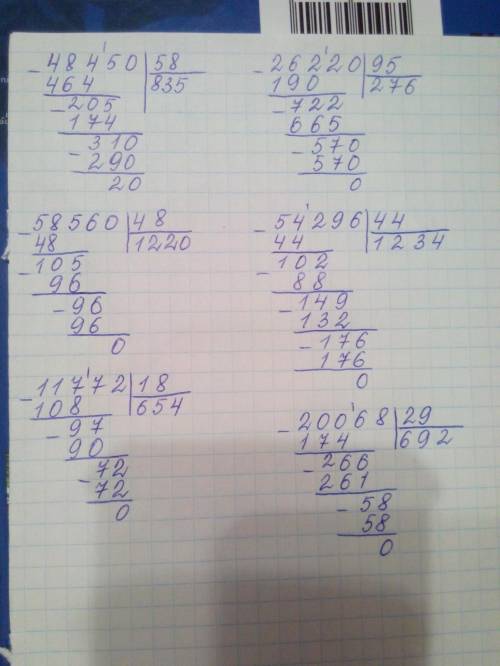 48450 | 58
464 | 835
205
174
310
290
20
26220 | 95
190 | 276
722
665
570
570
0
58560 | 48
48 | 1220
105
96
96
96
0
54296 | 44
44 | 1234
102
88
149
132
176
176
0
11772 | 18
108 | 654
97
90
72
72
0
20068 | 29
174 | 692
266
261
58
58
0